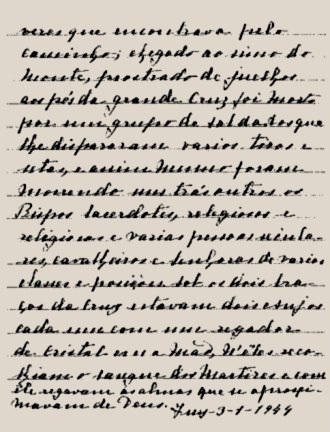 veres que encontrava pelo
caminho; chegado ao simo do
monte, prostrado de juelhos
aos pés da grande Cruz foi morto
por um grupo de soldados que
lhe dispararam varios tiros e
setas, e assim mesmo foram
morrendo uns trás outros os
Bispos Sacerdotes, religiosos e
religiosas e varias pessoas secula-
res, cavalheiros e senhoras de varias
classes e posições. Sob os dois bra-
ços da Cruz estavam dois Anjos
cada um com um regador
de cristal em a mão, n'êles reco-
lhiam o sangue dos Martires e com
êle regavam as almas que se aproxi-
mavam de Deus.
Tuy-3-1-1944